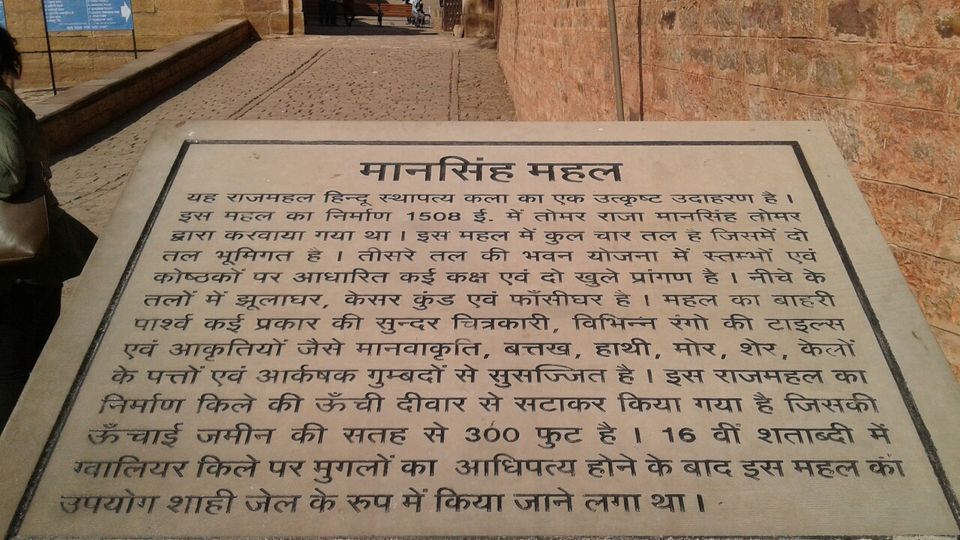 मानसिंह महल
यह राजमहल हिन्दू स्थापत्य कला का एक उत्कृष्ट उदाहरण है।
इस महल का निर्माण 1508 ई. में तोमर राजा मानसिंह तोमर
द्वारा करवाया गया था। इस महल में कुल चार तल है जिसमें दो
तल भूमिगत है। तीसरे तल की भवन योजना में स्तम्भों एवं
कोष्ठकों पर आधारित कई कक्ष एवं दो खुले प्रांगण है। नीचे के
तलों में झूलाघर, केसर कुंड एवं फाँसीघर है। महल का बाहरी
पार्श्व कई प्रकार की सुन्दर चित्रकारी, विभिन्न रंगो की टाइल्स
एवं आकृतियों जैसे मानवाकृति, बत्तख, हाथी, मोर, शेर, केलों
के पत्तों एवं आर्कषक गुम्बदों से सुसज्जित है। इस राजमहल का
निर्माण किले की ऊँची दीवार से सटाकर किया गया है जिसकी
ऊँचाई जमीन की सतह से 300 फुट है। 16 वीं शताब्दी में
ग्वालियर किले पर मुगलों का आधिपत्य होने के बाद इस महल का
उपयोग शाही जेल के रुप में किया जाने लगा था।